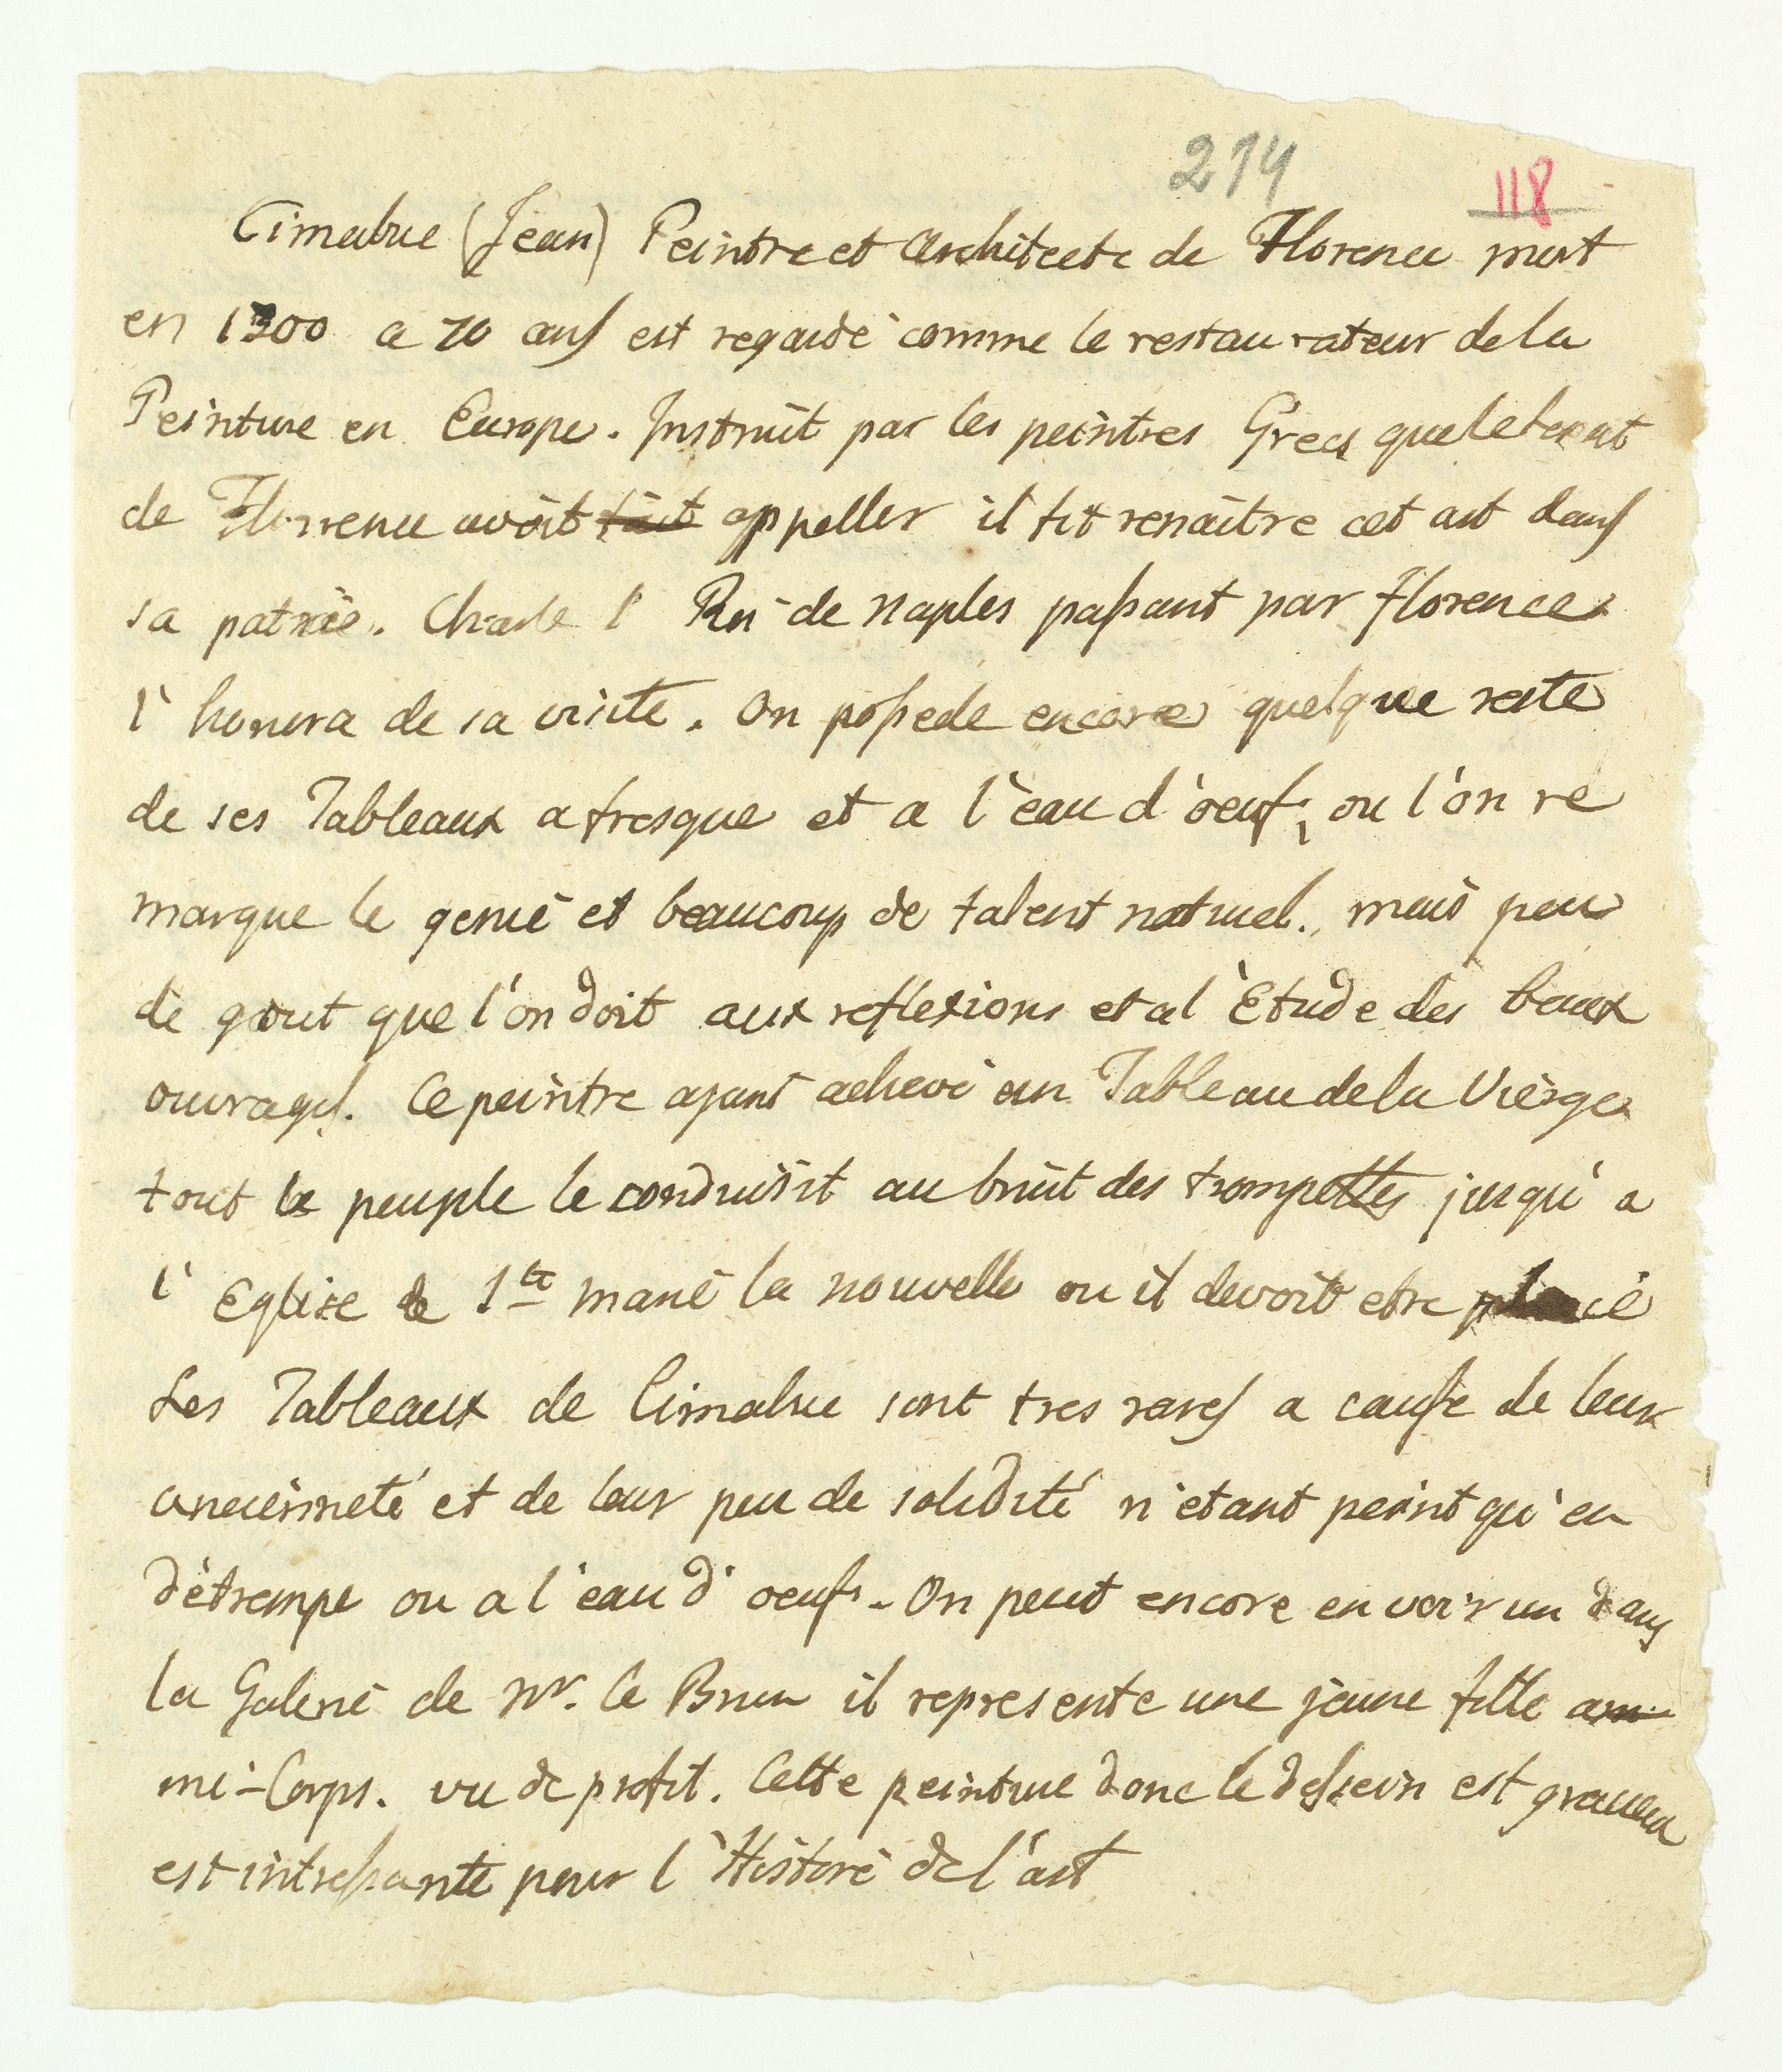 214
118
Cimabue (Jean) Peintre et Architecte de Florence mort
en 1300 a 70 ans est regardé comme le restaurateur de la
Peinture en Europe. Instruit par les peintres Grecs que le
de Florence avoit fait appeller il fit renaître cet art dans
sa patrie. Charle I Roi de Naples passant par Florence
l'honora de sa visite. On possede encore quelque reste
de ses Tableaux a fresque et a l'eau d'oeuf, ou l'on re
marque le genie et beaucoup de talent naturel., mais peu
de gout que l'on doit aux reflexions et a l'Etude des beaux
ouvrages. Ce peintre ayant achevé un Tableau de la Vierge
tout le peuple le conduisit au bruit des trompettes jusqu'a
l'Eglise de Ste Marie la nouvelle ou il devoit etre placé
Les Tableaux de Cimabue sont tres rares a cause de leur
ancienneté et de leur peu de solidité n'etant peint qu'en
détrempe ou a l'eau d'oeufs. On peut encore en voir un dans
la Galerie de Mr. le Brun il represente une jeune fille
mi-Corps. vu de profil. Cette peinture donc le dessein est
est intressante pour l'Histoire de l'art